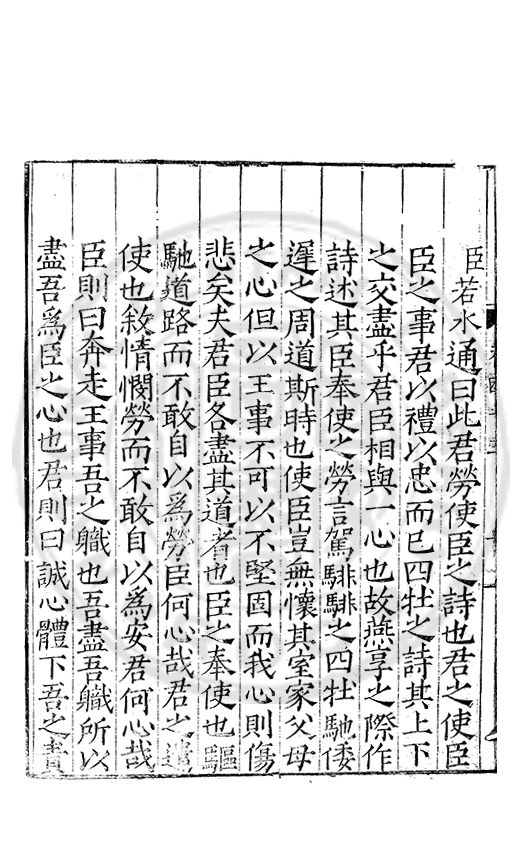 臣若水通曰此君勞使臣之詩也君之使臣
臣之事君以禮以忠而已四牡之詩其上下
之交盡乎君臣相與一心也故燕享之際作
詩述其臣奉使之勞言駕騑騑之四牡馳倭
遲之周道斯時也使臣豈無懷其室家父母
之心但以王事不可以不堅固而我心則傷
悲矣夫君臣各盡其道者也臣之奉使也驅
馳道路而不敢自以為勞臣何心哉君之遣
使也敘情憫勞而不敢自以為安君何心哉
臣則曰奔走王事吾之職也吾盡吾職所以
盡吾為臣之心也君則曰誠心體下吾之責